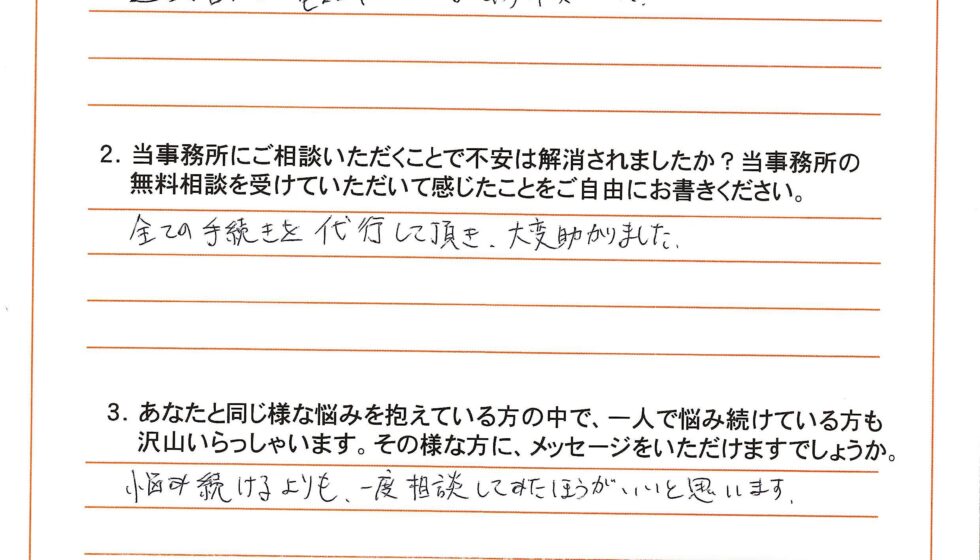 2. 当事務所にご相談いただくことで不安は解消されましたか？当事務所の
無料相談を受けていただいて感じたことをご自由にお書きください。
全ての手続きを代行して頂き、大変助かりました。
3. あなたと同じ様な悩みを抱えている方の中で、一人で悩み続けている方も
沢山いらっしゃいます。その様な方に、メッセージをいただけますでしょうか。
悩み続けるよりも、一度相談してみたほうがいいと思います。